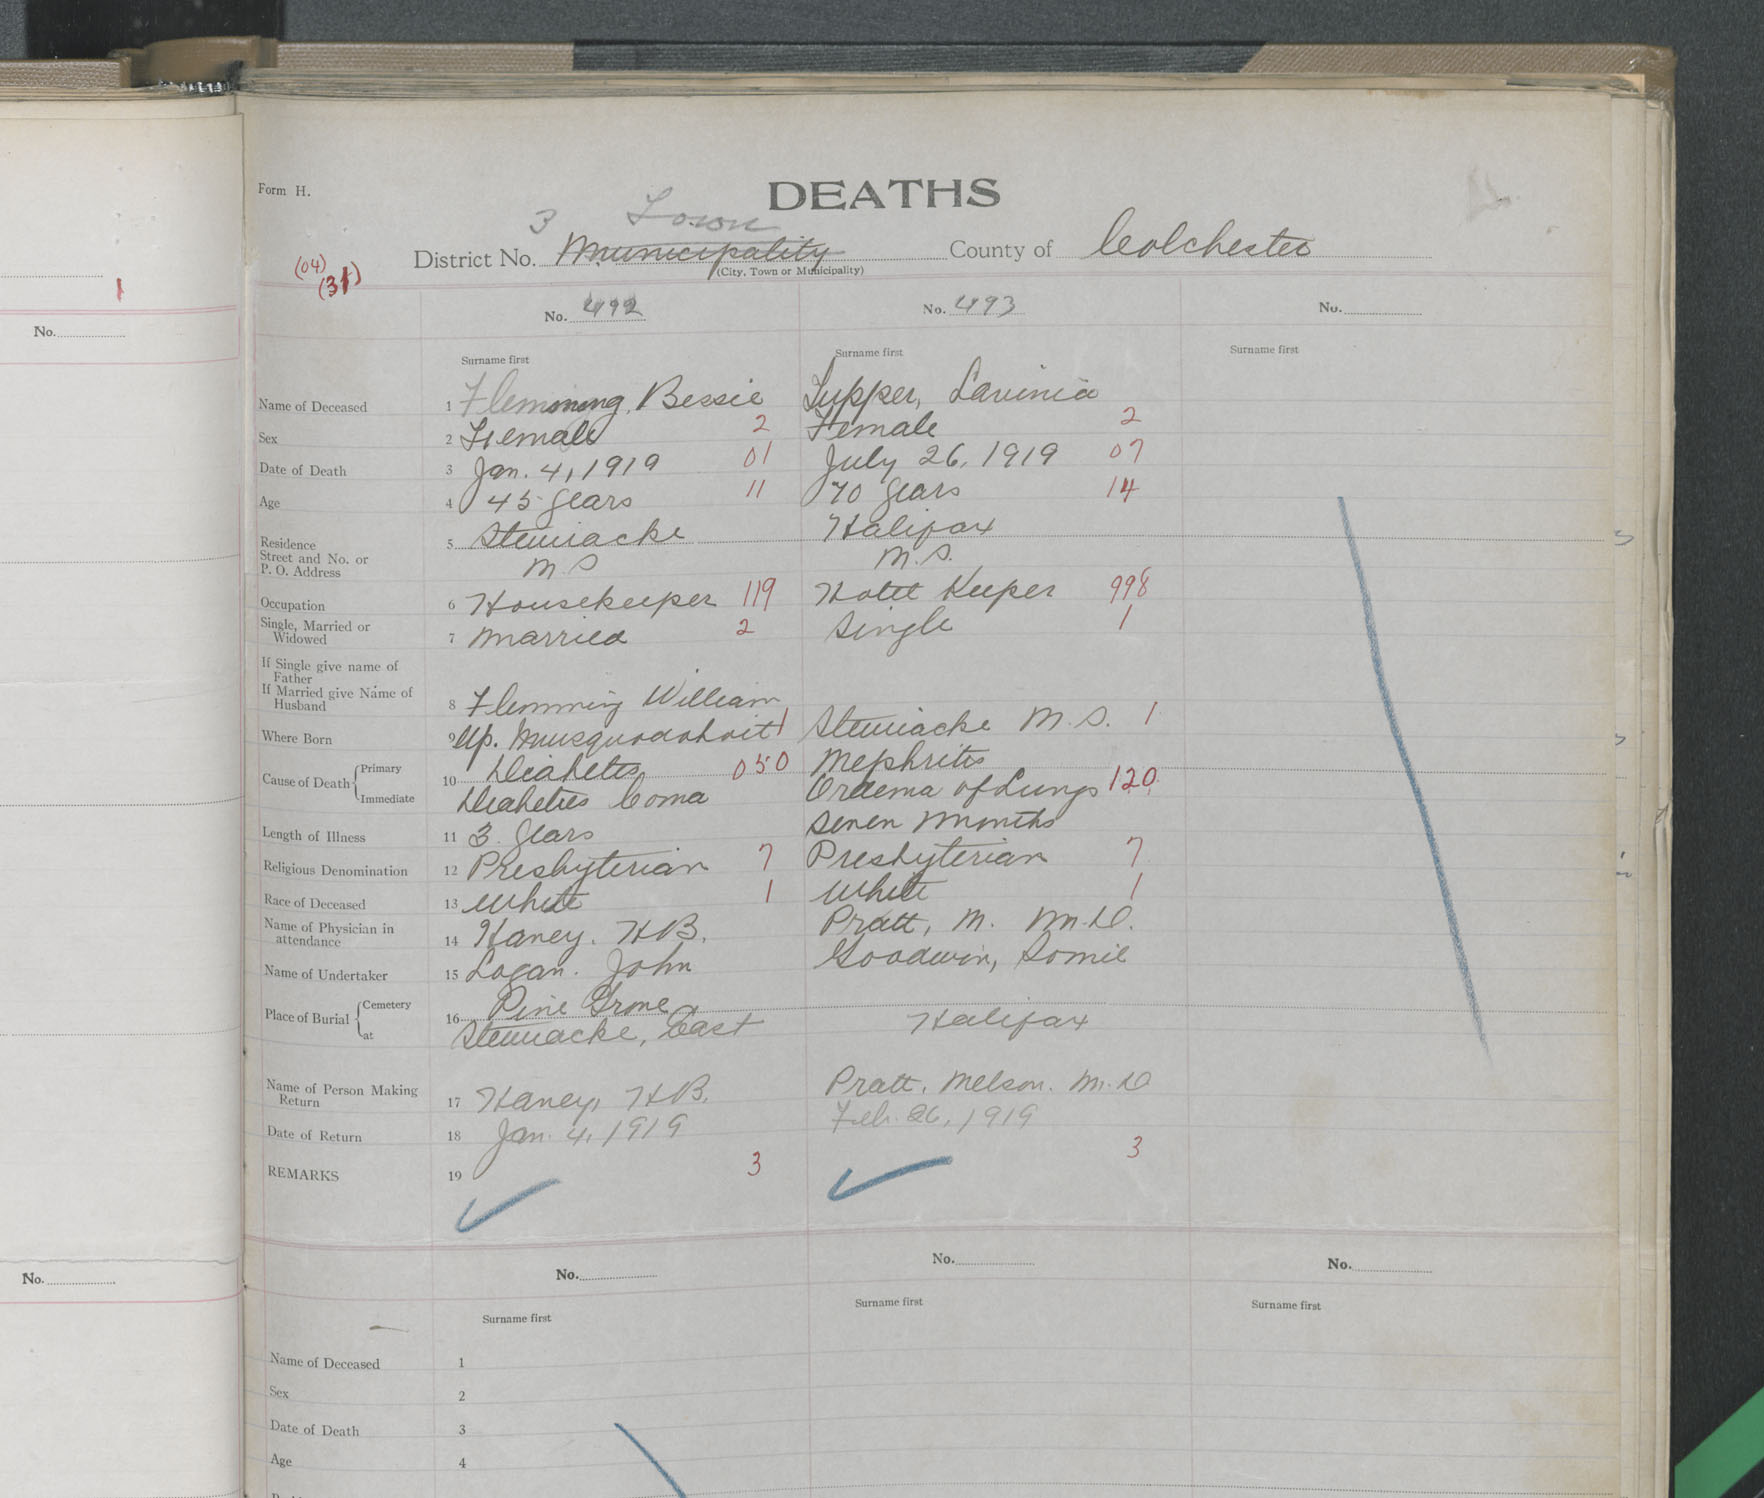 No.
No.
Form H.
DEATHS
3 Town
District No. Municipality County of Colchester
(City, Town or Municipality)
(04)
(31)
No. 492 No. 493 No.
Surname first Surname first Surname first
Name of Deceased 1 Flemming, Bessie Tupper, Lavinia
Sex 2 Female 2 Female 2
Date of Death 3 Jan. 4, 1919 01 July 26, 1919 07
Age 4 45 years 11 70 years 14
Residence 5 Stewiacke Halifax
Street and No. or
P. O. Address N.S. N.S.
Occupation 6 Housekeeper 119 Hotel Keeper 998
Single, Married or
Widowed 7 Married 2 Single 1
If Single give name of
Father
If Married give Name of
Husband 8 Flemming William
Where Born 9 Up. Musquodoboit 1 Stewiacke N.S. 1
Cause of Death { Primary 10 Diabetes 050 Nephritis
Immediate Diabetes Coma Oedema of Lungs 120
Length of Illness 11 3 years Seven Months
Religious Denomination 12 Presbyterian 7 Presbyterian 7
Race of Deceased 13 White 1 White 1
Name of Physician in
attendance 14 Haney, H B. Pratt, N. M.D.
Name of Undertaker 15 Logan. John Goodwin,
Place of Burial { Cemetery 16 Pine Grove
at Stewiacke, East Halifax
Name of Person Making
Return 17 Haney, H B. Pratt, Nelson. M.D
Date of Return 18 Jan. 4, 1919 Feb. 26, 1919
REMARKS 19 3 3
No. No. No.
Surname first Surname first Surname first
Name of Deceased 1
Sex 2
Date of Death 3
Age 4